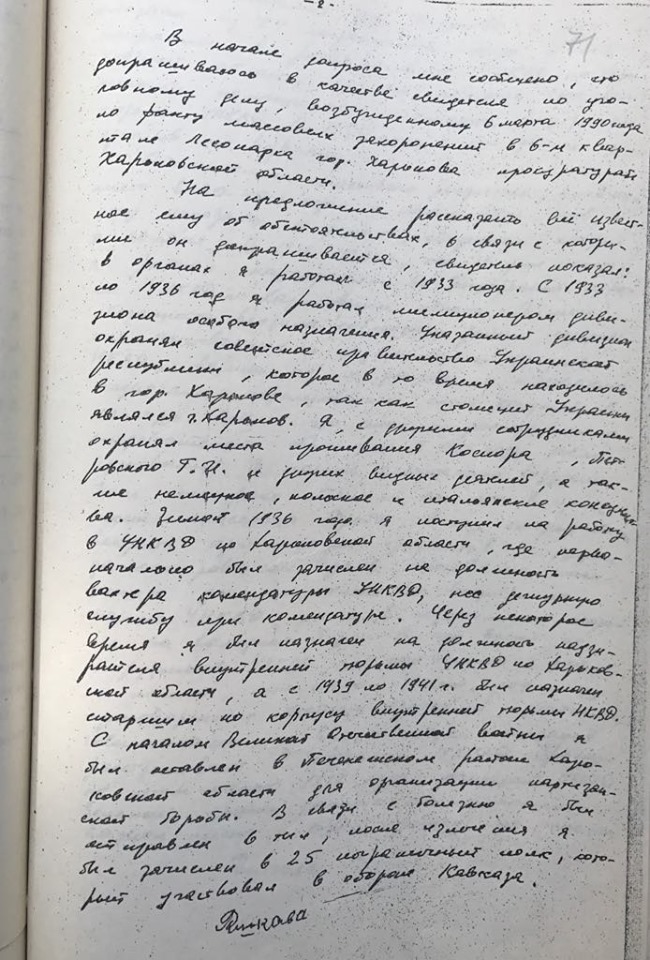 -2-
71
В начале допроса мне сообщено, что
допрашиваюсь в качестве свидетеля по уго-
ловному делу, возбужденному 6 марта 1990 года
по факту массовых захоронений в 6-м квар-
тале Лесопарка гор. Харькова прокуратурой
Харьковской области.
На предложение рассказать всё извест-
ное ему об обстоятельствах, в связи с которы-
ми он допрашивается, свидетель показал:
в органах я работал с 1933 года. С 1933
по 1936 год я работал милиционером диви-
зиона особого назначения. Указанный дивизион
охранял советское правительство Украинской
республики, которое в то время находилось
в гор. Харькове, так как столицей Украины
являлся г. Харьков. Я, с другими сотрудниками
охранял места проживания Косиора, Пет-
ровского Г.И. и других видных деятелей, а так-
же немецкое, польское и итальянское консульст-
ва. Зимой 1936 года я поступил на работу
в УНКВД по Харьковской области, где перво-
начально был зачислен на должность
вахтера комендатуры УНКВД, нес дежурную
службу при комендатуре. Через некоторое
время я был назначен на должность надзи-
рателя внутренней тюрьмы УНКВД по Харьков-
ской области, а с 1939 по 1941 г. был назначен
старшим по корпусу внутренней тюрьмы НКВД.
С началом Великой Отечественной войны я
был оставлен в Печенежском районе Харь-
ковской области для организации партизан-
ской борьбы. В связи с болезнью я был
отправлен в тыл, после излечения я
был зачислен в 25 пограничный полк, кото-
рый участвовал в обороне Кавказа.